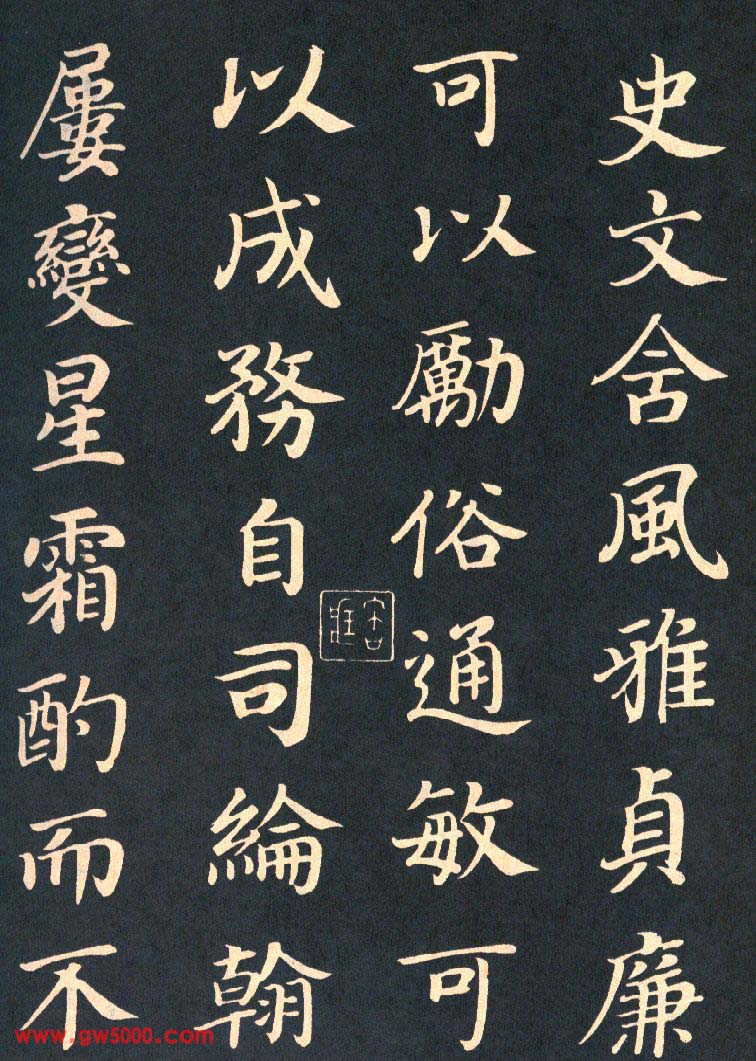 史文舍風雅貞廉
可以勵俗通敏可
以成務自司綸翰
屢變星霜酌而不
www.gw5000.com